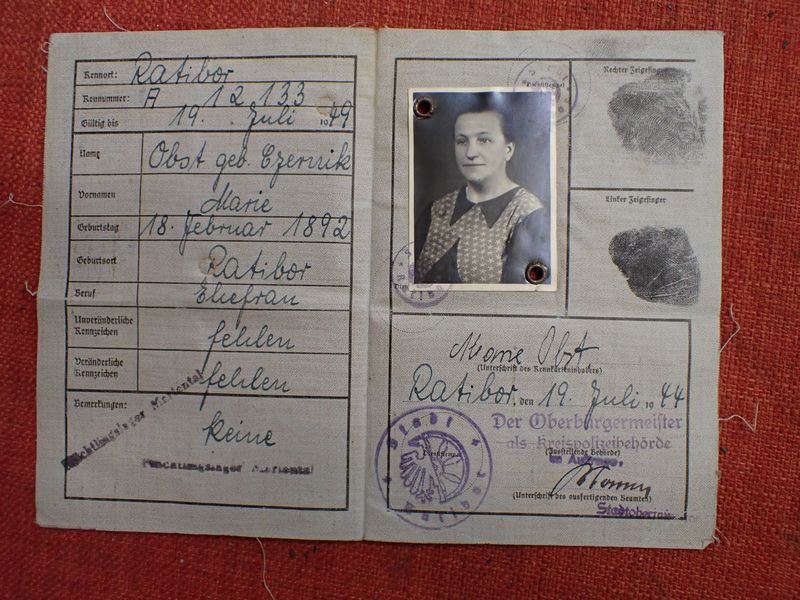 Kennort: Ratibor
Kennnummer: A 12133
Gültig bis 19. Juli 1949
Name Obst geb. Czernik
Vornamen Marie
Geburtstag 18. Februar 1892
Geburtsort Ratibor
Beruf Ehefrau
Unveränderliche Kennzeichen fehlen
Veränderliche Kennzeichen fehlen
Bemerkungen: keine
Flüchtlingslager Mariental
Flüchtlingslager Mariental
Rechter Zeigefinger
Linker Zeigefinger
Marie Obst
(Unterschrift des Kennkarteninhabers)
Ratibor, den 19. Juli 1944
Der Oberbürgermeister
als Kreispolizeibehörde
(Ausstellende Behörde)
Im Auftrage.
(Unterschrift des ausfertigenden Beamten)
Stadt
Ratibor